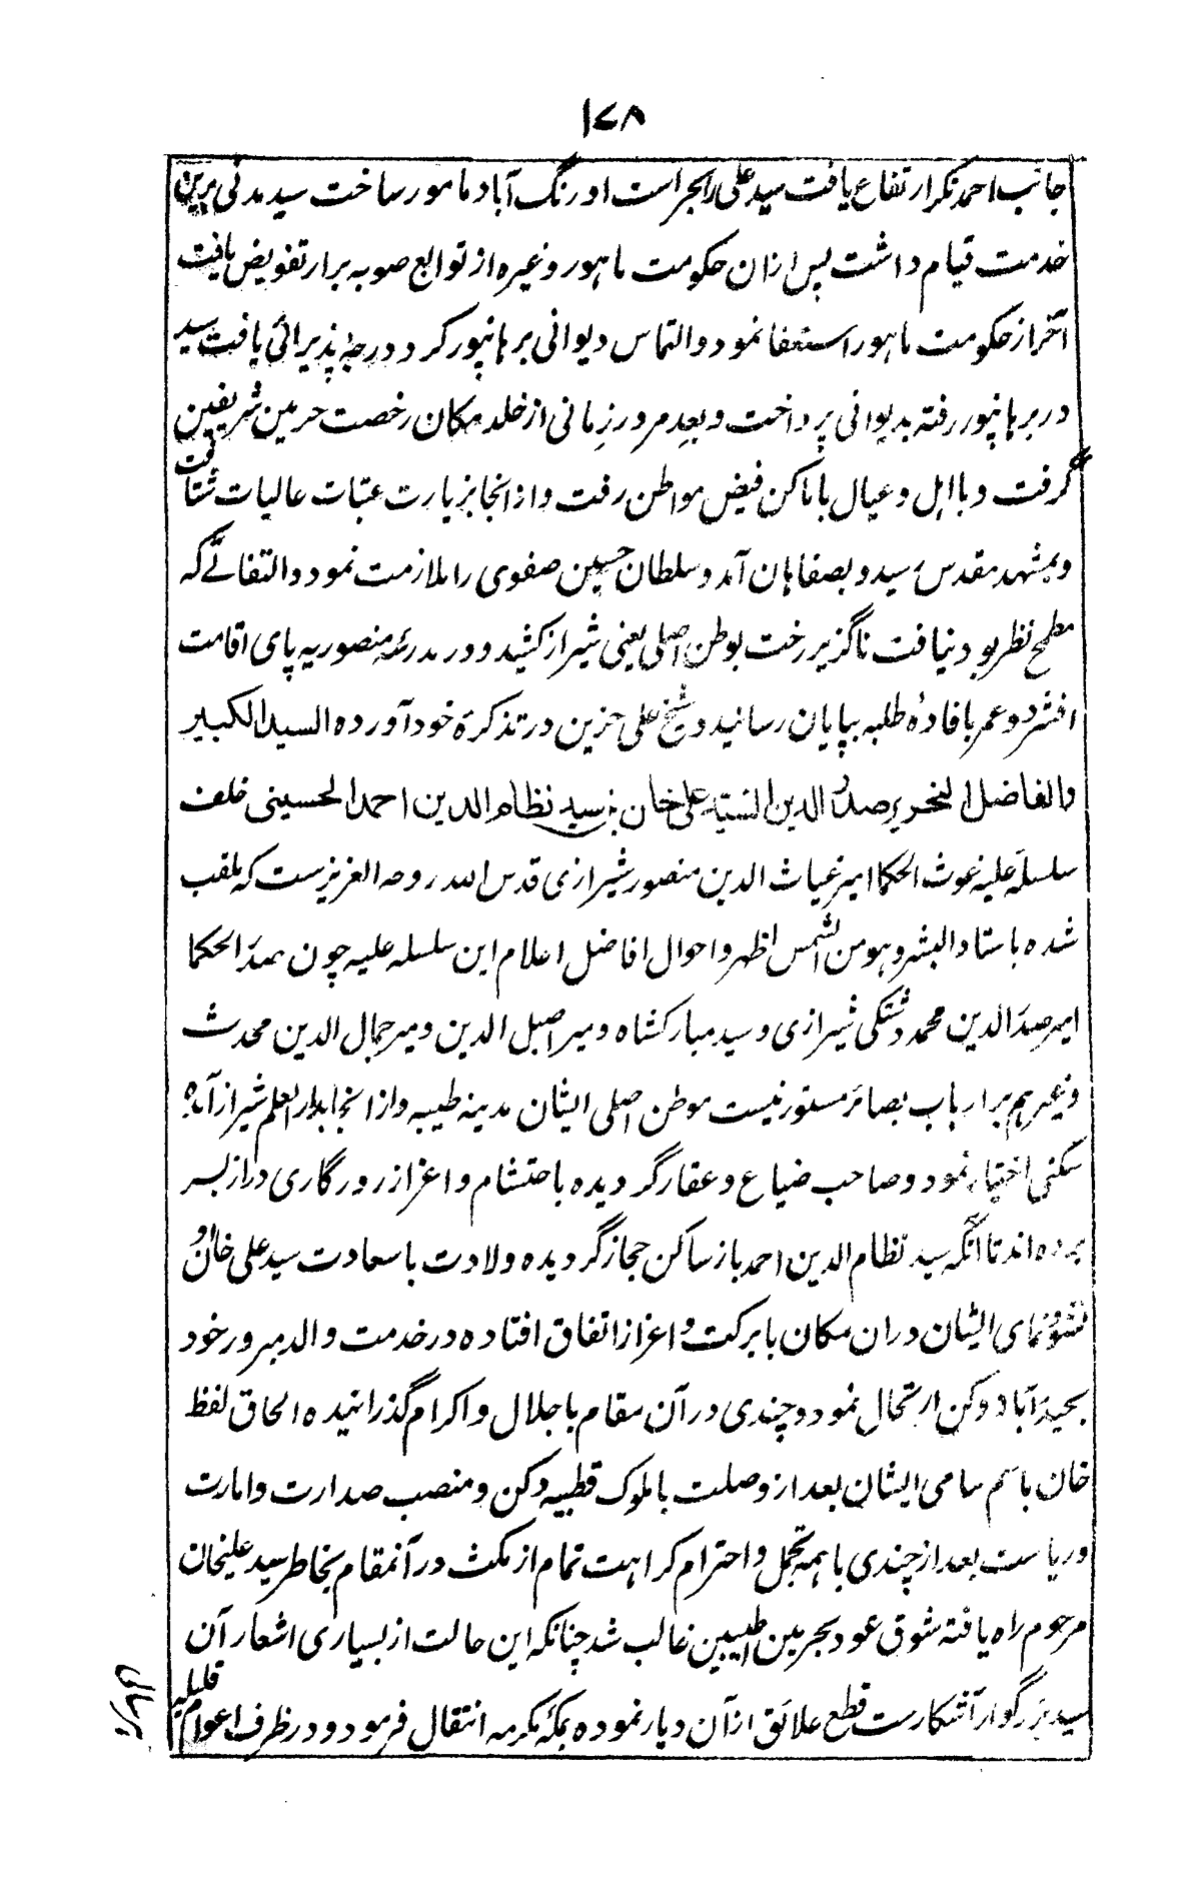 ۱۷۸
جانب احمدنگر ارتفاع یافت سید علی را بحراست اورنگ آباد مامور ساخت سید مدتی برین
خدمت قیام داشت پس ازان حکومت ماهور وغیره از توابع صوبه برار تفویض یافت
آخر از حکومت ماهور استعفا نمود والتماس دیوانی برهانپور کرد و درجۀ پذیرائی یافت سید
در برهانپور رفته بدیوانی پرداخت و بعد مرور زمانی از خلد مکان رخصت حرمین شریفین
گرفت و با اهل و عیال باماکن فیض مواطن رفت و از انجا بزیارت عتبات عالیات شتافت
و بمشهد مقدس رسید و بصفاهان آمد و سلطان حسین صفوی را ملازمت نمود و التفاتے که
مطمح نظر بود نیافت ناگزیر رخت بوطن اصلی یعنی شیراز کشید و در مدرسۀ منصوریه پای اقامت
افشرد و عمر بافادۀ طلبه بپایان رسانید و شیخ علی حزین در تذکرۀ خود آورده السید الکبیر
والفاضل النحریر صدر الدین السید علی خان بن سید نظام الدین احمد الحسینی خلف
سلسلۀ علیه غوث الحکما امیر غیاث الدین منصور شیرازی قدس الله روحه العزیز ست که ملقب
شده باستاد البشر و هو من الشمس اظهر و احوال افاضل اعلام این سلسله علیه چون صدر الحکما
امیر صدر الدین محمد دشتکی شیرازی و سید مبارکشاه و میر اصیل الدین و میر جمال الدین محدث
و غیرهم بر ارباب بصائر مستور نیست موطن اصلی ایشان مدینه طیبه و از انجا بدار العلم شیراز آمده
سکنی اختیار نمود و صاحب ضیاع و عقار گردیده با حتشام و اعزاز روزگاری دراز بسر
برده اند تا آنکه سید نظام الدین احمد باز ساکن حجاز گردیده ولادت با سعادت سید علی خان و
نشو و نمای ایشان دران مکان با برکت و اعزاز اتفاق افتاده در خدمت والد مبرور خود
بحیدرآباد دکن ارتحال نمود و چندی در آن مقام با جلال و اکرام گذرانیده الحاق لفظ
خان باسم سامی ایشان بعد از وصلت با ملوک قطبیه دکن و منصب صدارت و امارت
و ریاست بعد از چندی با همه تجمل و احترام کراهت تمام از مکث در آنمقام بخاطر سید علیخان
مرحوم راه یافته شوق عود بحرمین اطیبین غالب شد چنانکه این حالت از بسیاری اشعار آن
سید بزرگوار آشکارست قطع علائق از آن دیار نموده بمکۀ مکرمه انتقال فرمود و در ظرف اعوام قلیله